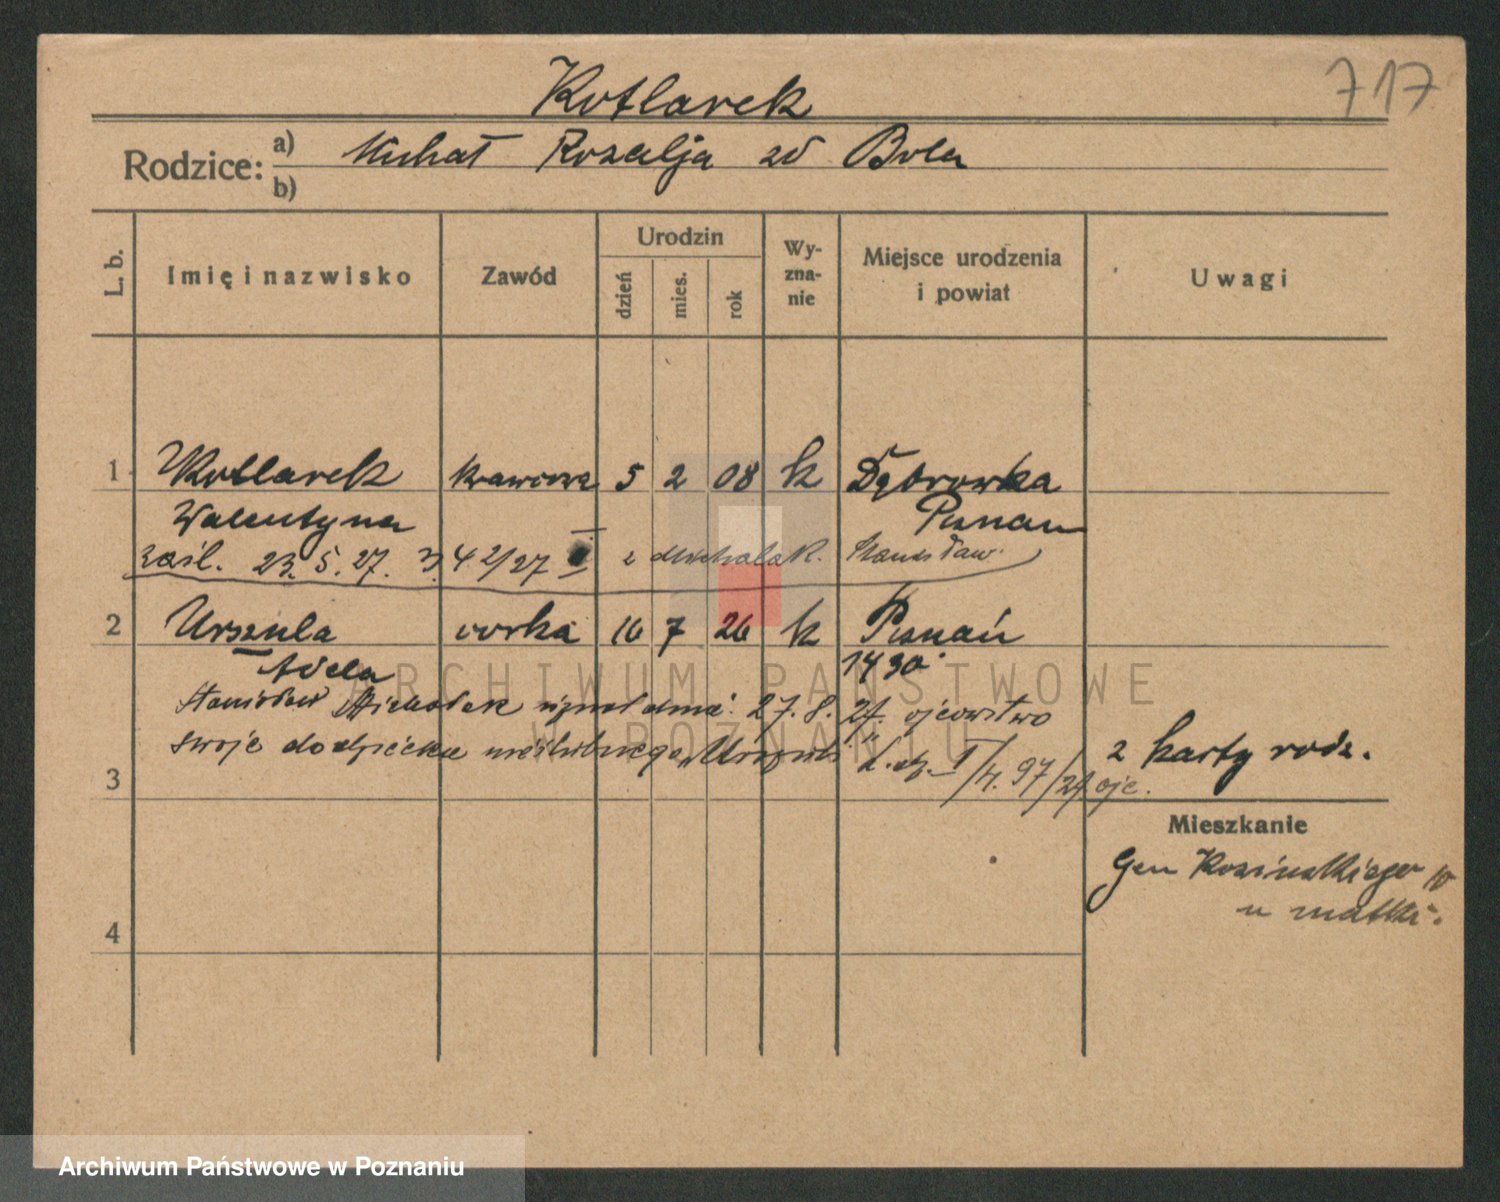 Kotlarek
717
Rodzice: a) Michał Rozalja zd Bola
b)
L. b. Imię i nazwisko Zawód Urodzin dzień mies. rok Wy-zna-nie Miejsce urodzenia i powiat Uwagi
1 Kotlarek krawcowa 5 2 08 k Dąbrowka
Walentyna Poznań
zaśl. 23. 5. 27. 42/27 II z Michalak. Stanisław.
2 Urszula córka 16 7 26 k Poznań
Adela 1490.
Stanisław Michalak uznał dnia 27. 8. 27. ojcowstwo
swoje do dziecka nieślubnego Urszuli
L. dz. I/4. 97/27 ojc.
3
2 karty rodz.
Mieszkanie
Gen Kosinskiego 10
u matki.
4
ARCHIWUM PAŃSTWOWE
W POZNANIU
Archiwum Państwowe w Poznaniu